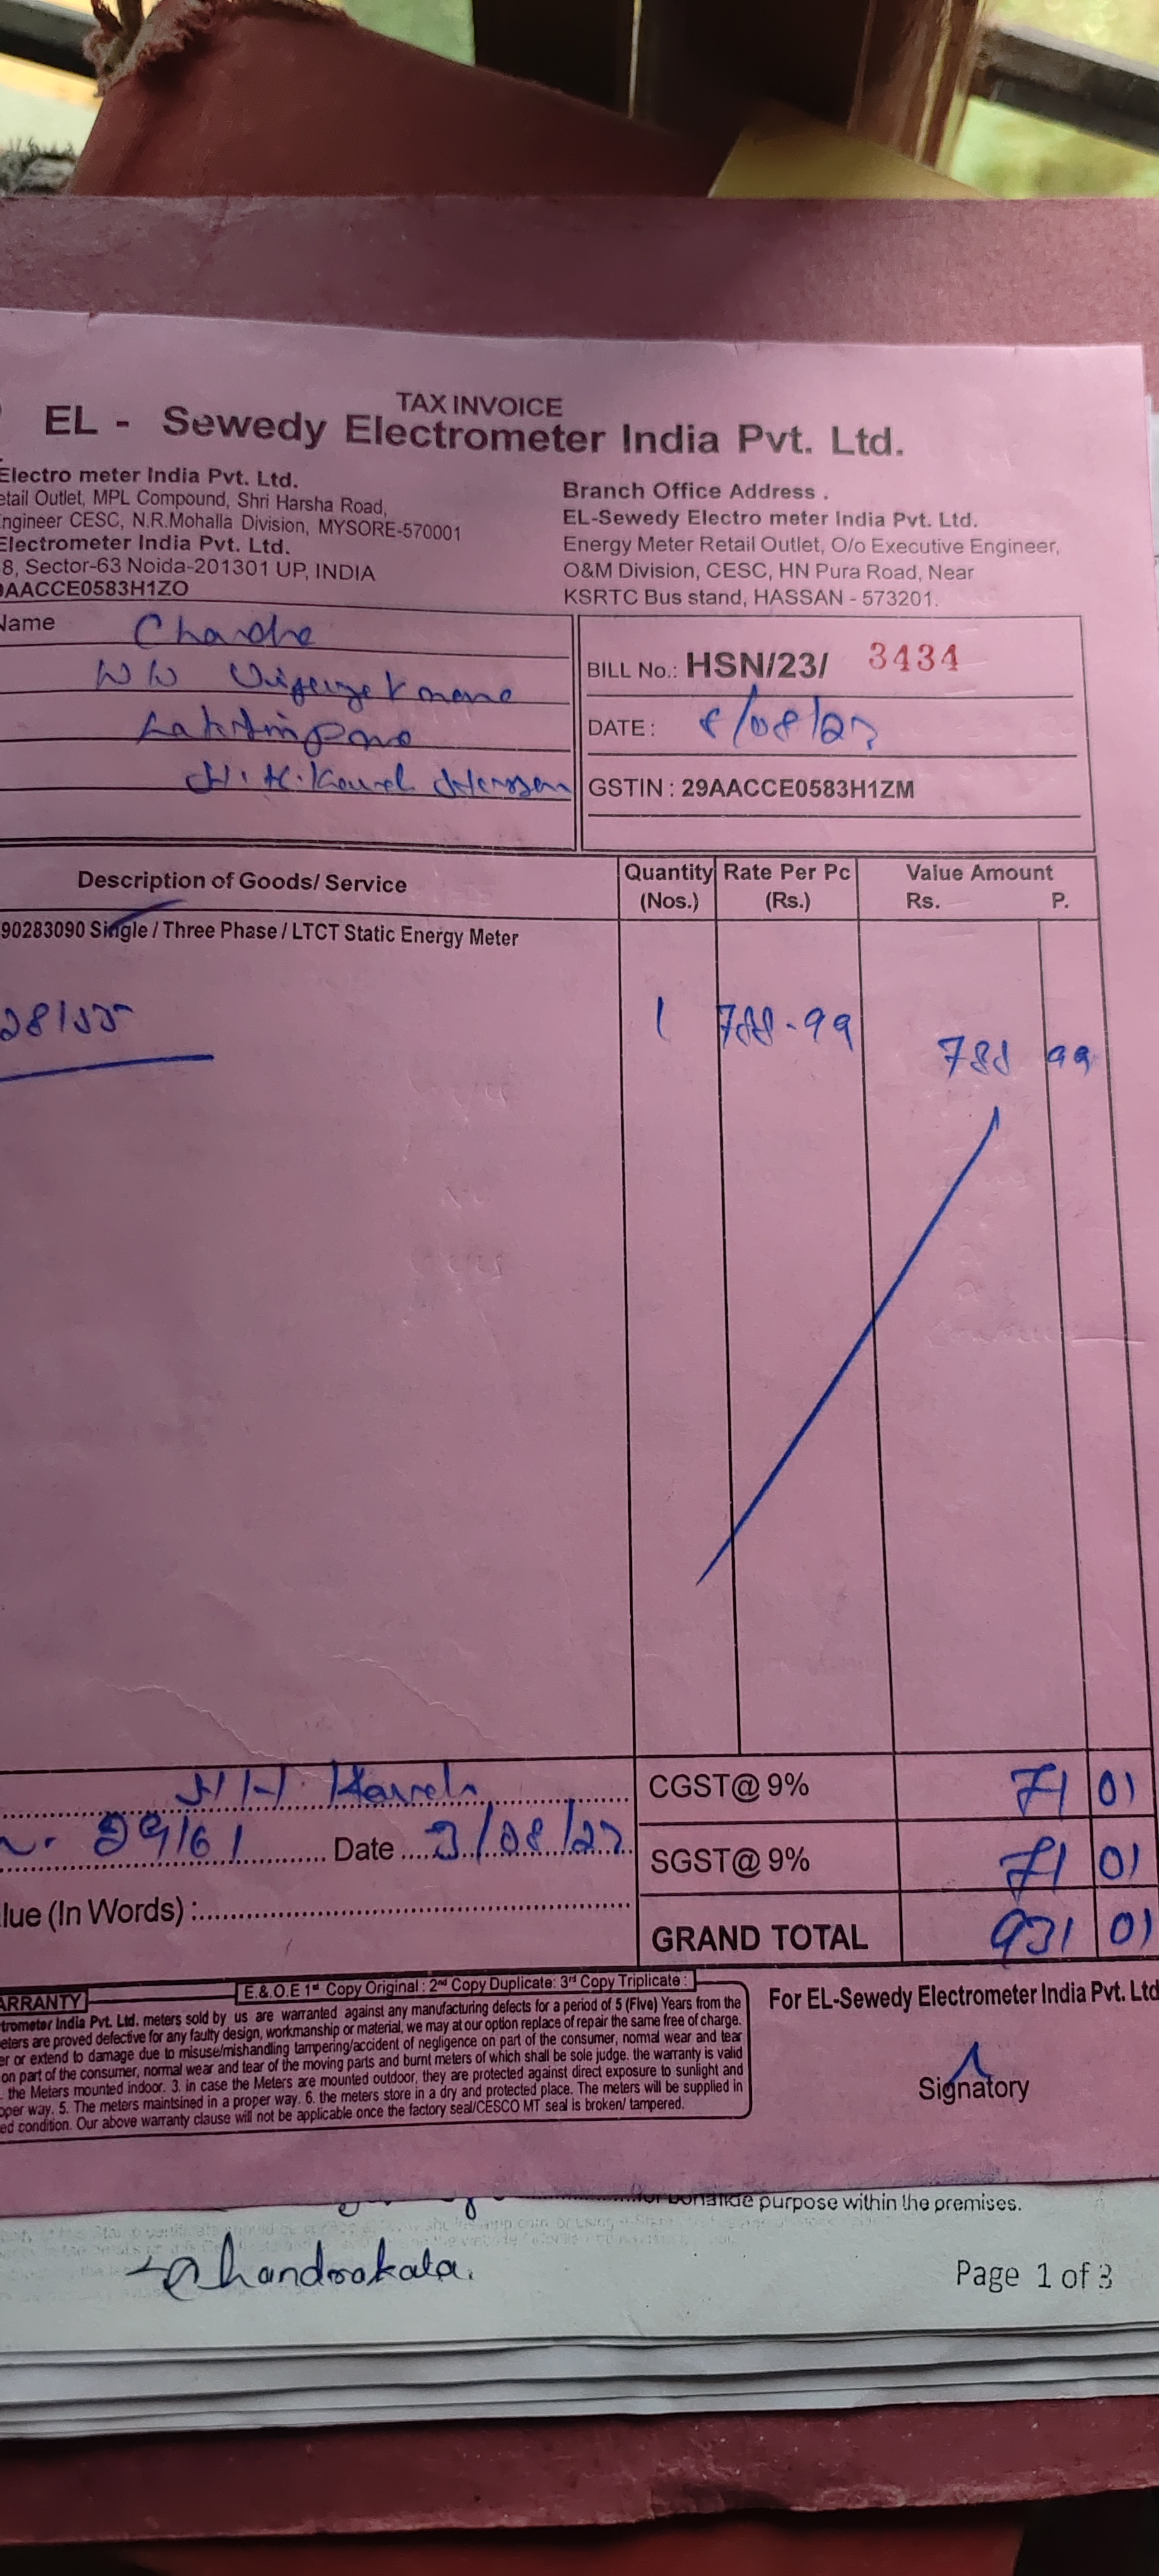 TAX INVOICE
EL - Sewedy Electrometer India Pvt. Ltd.
Electro meter India Pvt. Ltd.
etail Outlet, MPL Compound, Shri Harsha Road,
ngineer CESC, N.R.Mohalla Division, MYSORE-570001
Electrometer India Pvt. Ltd.
8, Sector-63 Noida-201301 UP, INDIA
9AACCE0583H1ZO
Branch Office Address .
EL-Sewedy Electro meter India Pvt. Ltd.
Energy Meter Retail Outlet, O/o Executive Engineer,
O&M Division, CESC, HN Pura Road, Near
KSRTC Bus stand, HASSAN - 573201.
Name
BILL No.: HSN/23/ 3434
DATE : 8/08/23
GSTIN : 29AACCE0583H1ZM
Description of Goods/ Service
Quantity (Nos.)
Rate Per Pc (Rs.)
Value Amount
Rs. P.
90283090 Single / Three Phase / LTCT Static Energy Meter
1 788-99 788 99
CGST@ 9% 71 01
Date 3/08/23
SGST@ 9% 71 01
lue (In Words) :
GRAND TOTAL 931 01
E.&.O.E 1st Copy Original : 2nd Copy Duplicate: 3rd Copy Triplicate :
ARRANTY
trometer India Pvt. Ltd. meters sold by us are warranted against any manufacturing defects for a period of 5 (Five) Years from the
eters are proved defective for any faulty design, workmanship or material, we may at our option replace of repair the same free of charge.
er or extend to damage due to misuse/mishandling tampering/accident of negligence on part of the consumer, normal wear and tear
on part of the consumer, normal wear and tear of the moving parts and burnt meters of which shall be sole judge. the warranty is valid
. the Meters mounted indoor. 3. in case the Meters are mounted outdoor, they are protected against direct exposure to sunlight and
oper way. 5. The meters maintsined in a proper way. 6. the meters store in a dry and protected place. The meters will be supplied in
ed condition. Our above warranty clause will not be applicable once the factory seal/CESCO MT seal is broken/ tampered.
For EL-Sewedy Electrometer India Pvt. Ltd
Signatory
purpose within the premises.
Chandrakala.
Page 1 of 3